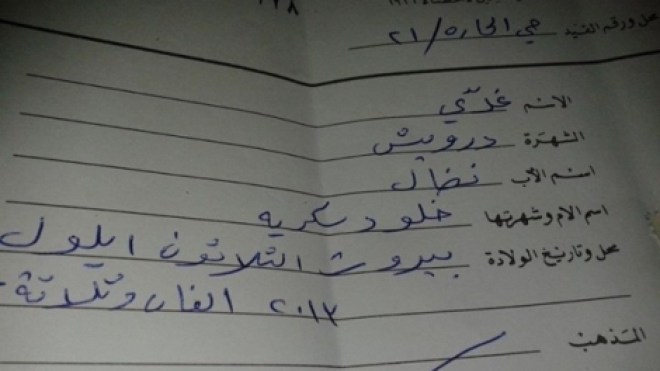 محل ورقم القيد حي الحاره/٢١
الاسم غدّي
الشهرة درويش
اسم الأب نضال
اسم الام وشهرتها خلود سكريه
محل وتاريخ الولادة بيروت الثلاثون ايلول
٢٠١٣ الفان وثلاثة
المذهب